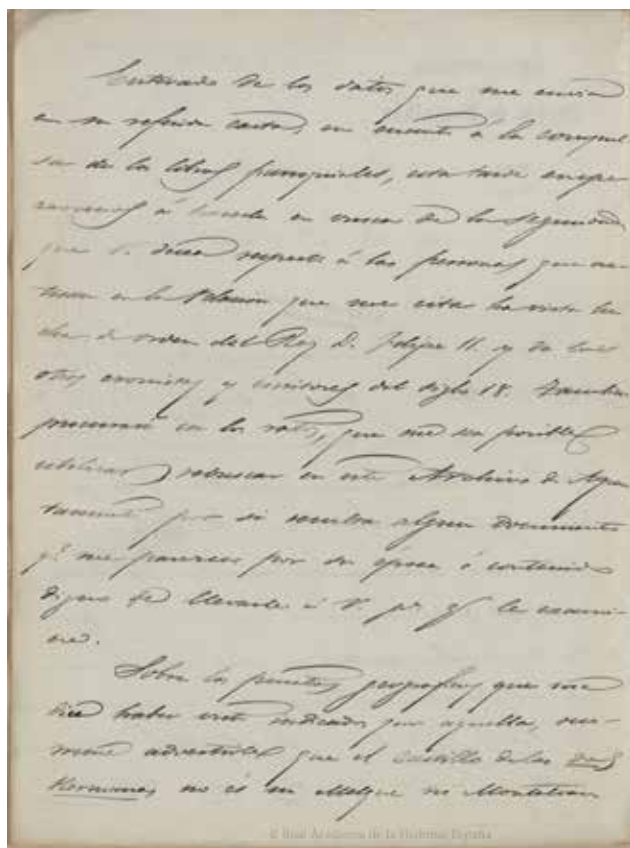 Enterado de los datos que me envia
en su referida carta, en cuanto á la compul
sa de los libros parroquiales, esta tarde empe
zaremos á hacerla en busca de la segunda
que V. desea respecto á las personas que
en la Relacion que me cita ha visto
de orden del Rey D. Felipe II. y de
otros cronistas y escritores del siglo 18. Tambien
procuraré en los ratos, que me sea posible
utilizar, rebuscar en este Archivo de Ayun
tamiento por si resulta algun documento
q.e me parezca por su época ó contenido
digno de llevarle á V. p.a q.e le exami-
ne.
Sobre los puntos geograficos que me
dice haber visto indicados por aquella,
advertirle que el Castillo de las dos
Hermanas no es ni Malque ni Montalvan
© Real Academia de la Historia. España